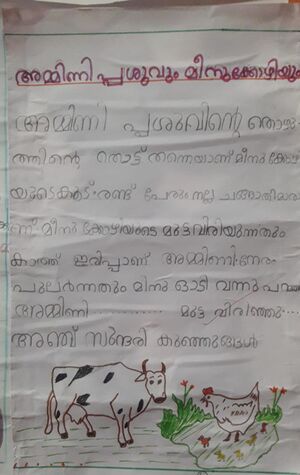 അമ്മിണി പ്പശുവും മീനുക്കോഴിയും
അമ്മിണി പ്പശുവിന്റെ തൊഴു
ത്തിന്റെ തൊട്ട് തന്നെയാണ് മീനു കോഴി
യുടെകൂട്. രണ്ട് പേരും നല്ല ചങ്ങാതിമാരാ
ണ്. മീനു കോഴിയുടെ മുട്ടവിരിയുന്നതും
കാത്ത് ഇരിപ്പാണ് അമ്മിണി. നേരം
പുലർന്നതും മീനു ഓടി വന്നു പറഞ്ഞു
അമ്മിണി ............... മുട്ട വിരിഞ്ഞു....
അഞ്ച് സുന്ദരി കുഞ്ഞുങ്ങൾ